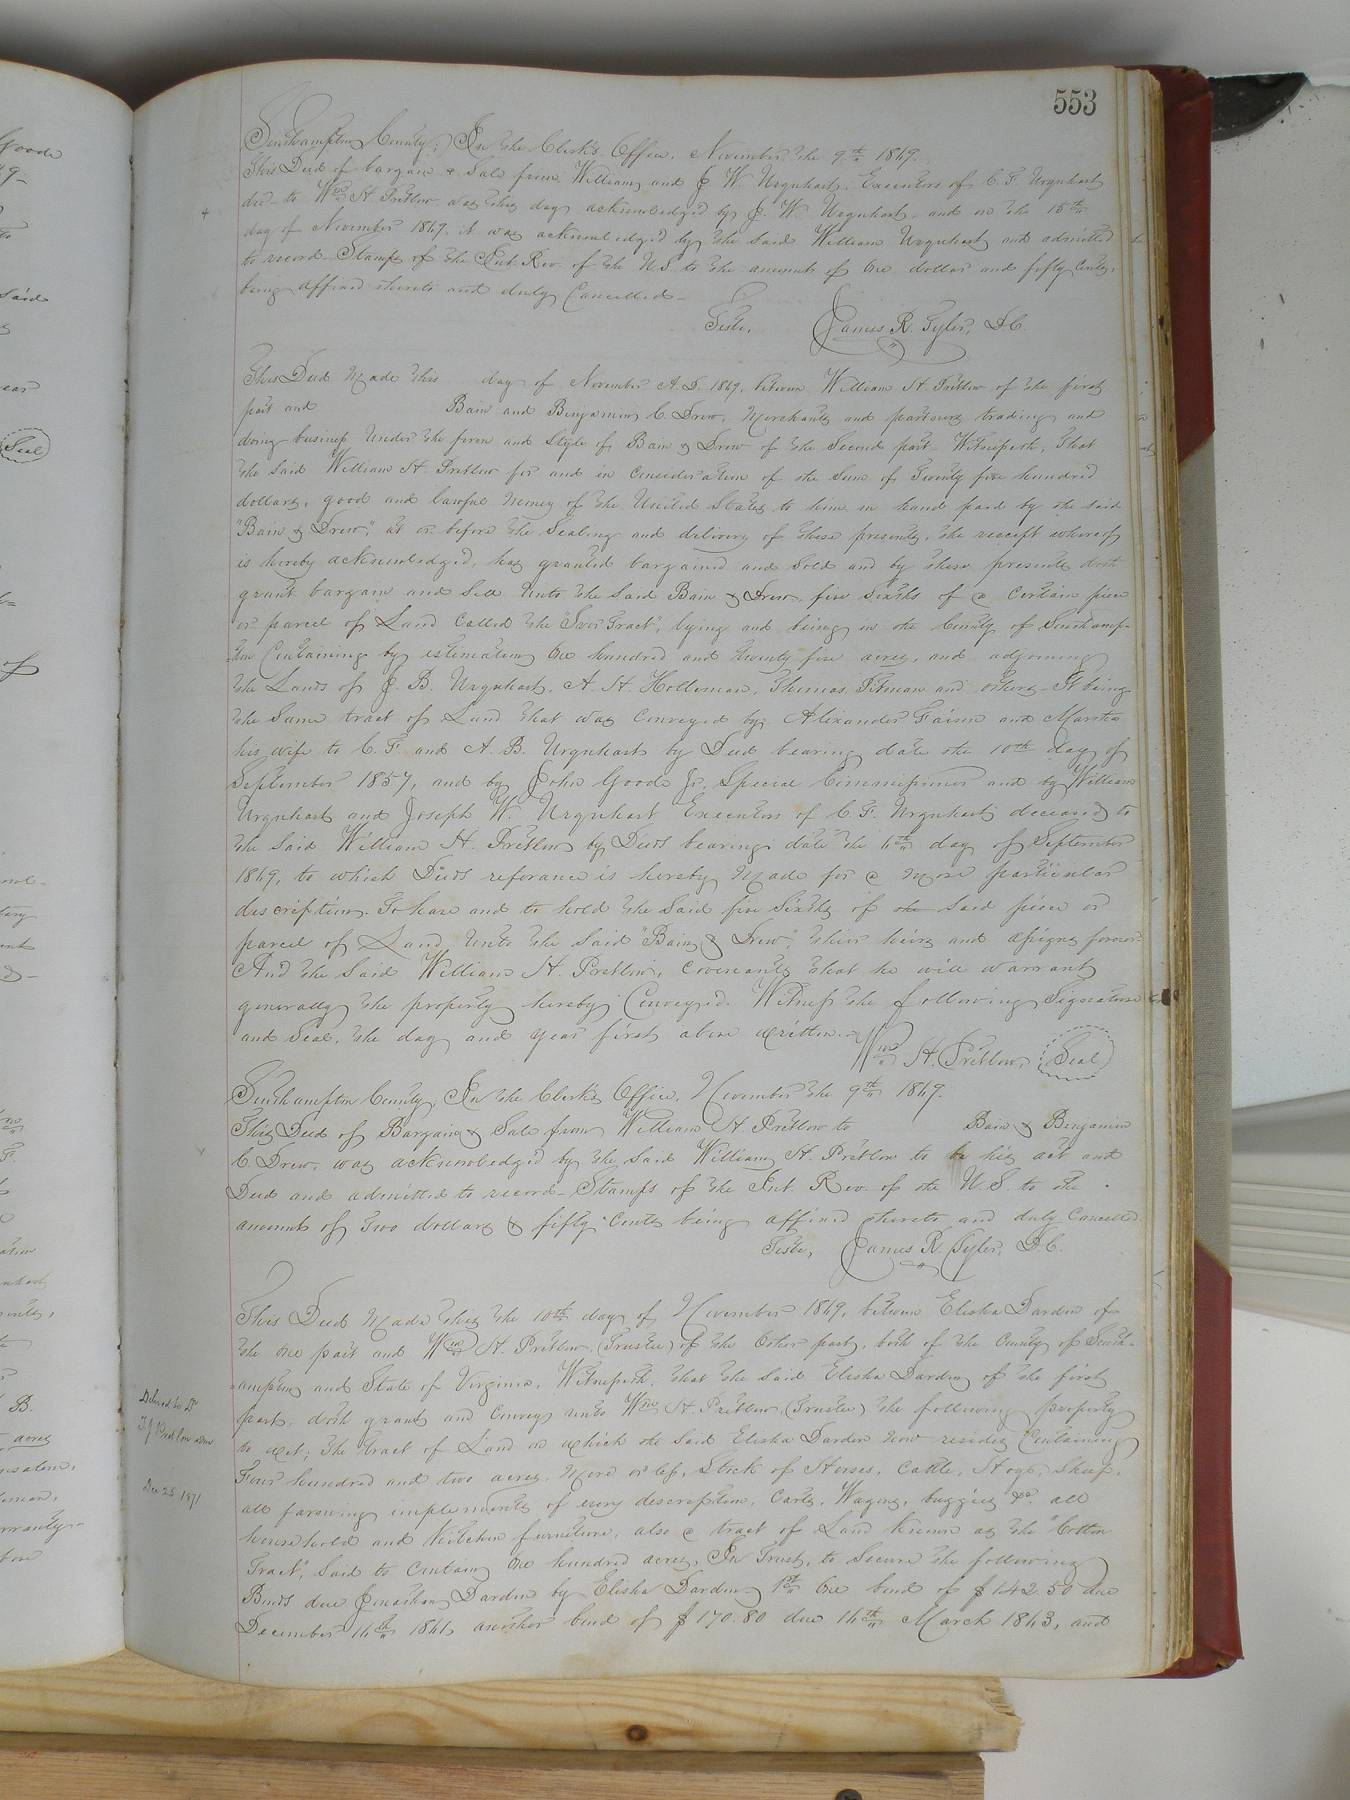 553
Southampton County; In the Clerk's Office, November the 9th 1869.
This Deed of bargain & Sale from William and J W. Urquhart, Executors of C. F. Urquhart
dec. to Wm H. Pretlow was this day acknowledged by J. W. Urquhart, and on the 15th
day of November 1869. it was acknowledged by the said William Urquhart and admitted
to record. Stamps of the Int. Rev. of the U.S. to the amount of One dollar and fifty Cents,
being affixed thereto and duly Cancelled.
Teste, James R. Tyler, D.C.
This Deed Made this day of November A.D. 1869, between William H. Pretlow of the first
part and Bain and Benjamin C. Drew, Merchants and partners trading and
doing business Under the firm and Style of Bain & Drew of the Second part. Witnesseth, That
the said William H. Pretlow for and in Consideration of the Sum of Twenty five hundred
dollars, good and lawful money of the United States to him in hand paid by the said
"Bain & Drew," at or before the Sealing and delivery of these presents, the receipt whereof
is hereby acknowledged, has granted bargained and Sold and by these presents doth
grant bargain and Sell Unto the Said Bain & Drew, five Sixths of a Certain piece
or parcel of Land Called the Tract", lying and being in the County of Southamp-
ton Containing by estimation One hundred and twenty five acres, and adjoining
the Lands of J. B. Urquhart, A. H. Holleman, Thomas Pitman and others. It being
the Same tract of Land that was Conveyed by Alexander Faison and Martha
his wife to C. F. and A. B. Urquhart by Deed bearing date the 10th day of
September 1857, and by John Goode Jr. Special Commissioner and by William
Urquhart and Joseph W. Urquhart Executors of C. F. Urquhart deceased to
the Said William H. Pretlow by Deeds bearing date the day of September
1869, to which Deeds referance is hereby Made for a More particular
description. To have and to hold the Said five Sixths of the Said piece or
parcel of Land Unto the Said "Bain & Drew", their heirs and assigns forever
And the Said William H. Pretlow, Covenants that he will warrant
generally the property hereby Conveyed. Witness the following Signature
and Seal, the day and year first above written.
Wm H. Pretlow, Seal
Southampton County; In the Clerk's Office, November the 9th 1869.
This Deed of Bargain & Sale from William H. Pretlow to Bain & Benjamin
C. Drew, was acknowledged by the Said William H. Pretlow to be his act and
Deed and admitted to record. Stamps of the Int. Rev. of the U.S. to the
amount of two dollars & fifty Cents being affixed thereto and duly Cancelled.
Teste, James R. Tyler, D.C.
This Deed Made this the 10th day of November 1869, between Elisha Darden of
the one part and Wm H. Pretlow, (Trustee) of the Other part, both of the County of South-
ampton and State of Virginia, Witnesseth, that the Said Elisha Darden of the first
part, doth grant and Convey unto Wm H. Pretlow, (Trustee) the following property
to wit; the tract of Land on which the Said Elisha Darden Now resides Containing
Four hundred and two acres, More or less, Stock of Horses, Cattle, Hogs, Sheep,
all farming implements of every description, Carts, Wagons, buggies &c. all
household and Kitchen furniture, also a tract of Land Known as the "Cotton
Tract", Said to Contain One hundred acres, In Trust, to Secure the following
Bonds due Jonathan Darden by Elisha Darden, 1st One bond of $142.50 due
December 1861, another bond of $170.80 due March 1863, and
Delivered to Dr
Dec 25 1871
Seal